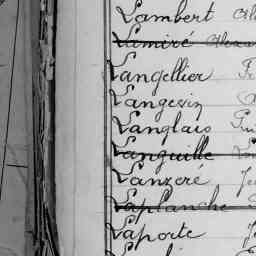 Lambert
Lamiré Alexa
Langellier Fr
Langevin
Langlais
Languille
Lanzeré
Laplanche
Laporte